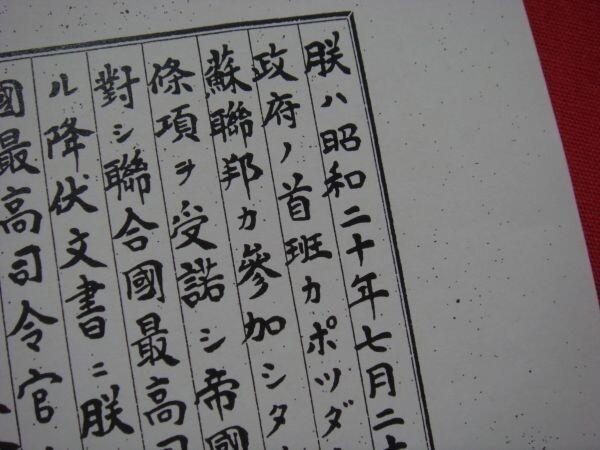 朕ハ昭和二十年七月二
政府ノ首班カポツダ
蘇聯邦カ參加シタ
條項ヲ受諾シ帝國
對シ聯合國最高司
ル降伏文書ニ朕
國最高司令官